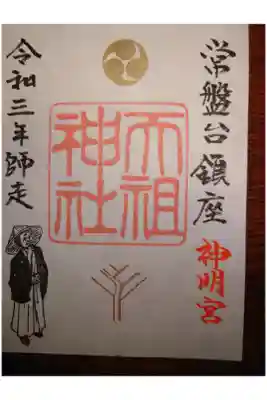 常盤台鎮座
神明宮
天祖
神社
令和三年師走